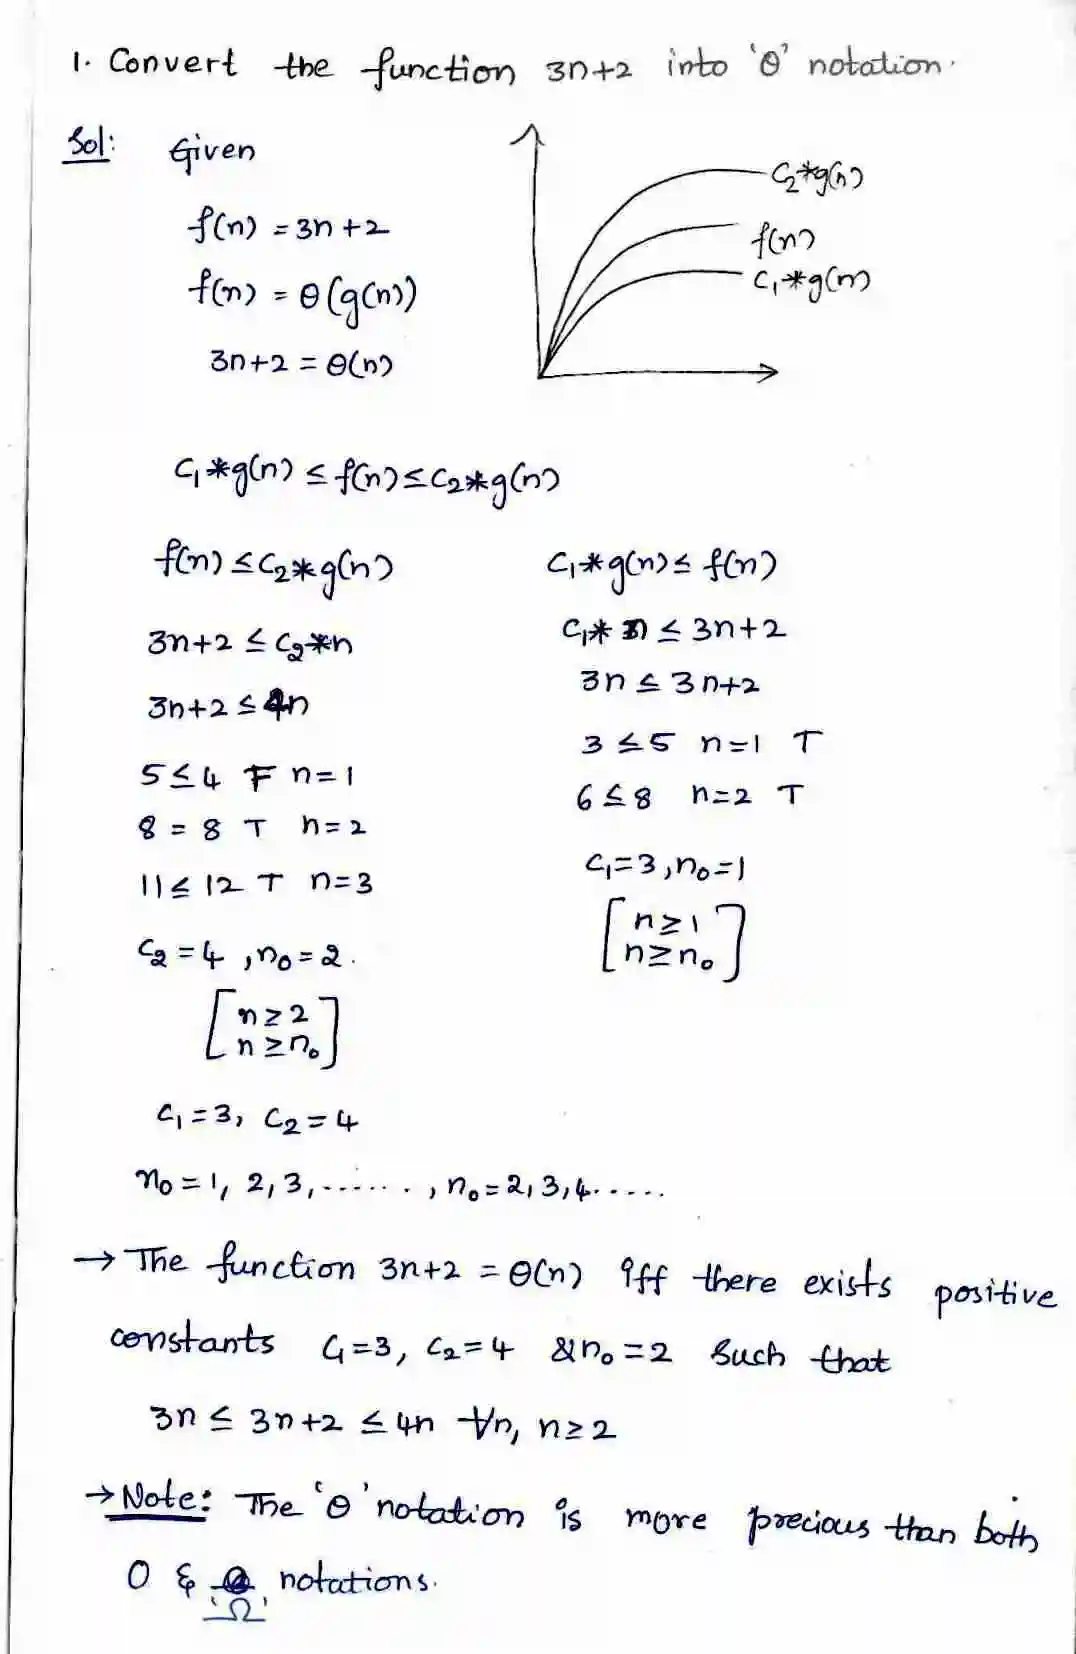 1. Convert the function 3n+2 into 'θ' notation.
Sol: Given
f(n) = 3n+2
f(n) = θ(g(n))
3n+2 = θ(n)
C₂*g(n)
f(n)
C₁*g(n)
C₁*g(n) ≤ f(n) ≤ C₂*g(n)
f(n) ≤ C₂*g(n)
3n+2 ≤ C₂*n
3n+2 ≤ 4n
5 ≤ 4 F n=1
8 = 8 T n=2
11 ≤ 12 T n=3
C₂ = 4, n₀ = 2.
[n ≥ 2
n ≥ n₀]
C₁*g(n) ≤ f(n)
C₁* n ≤ 3n+2
3n ≤ 3n+2
3 ≤ 5 n=1 T
6 ≤ 8 n=2 T
C₁=3, n₀=1
[n ≥ 1
n ≥ n₀]
C₁ = 3, C₂ = 4
n₀ = 1, 2, 3, ......., n₀ = 2, 3, 4.....
→ The function 3n+2 = θ(n) iff there exists positive
constants C₁=3, C₂=4 & n₀=2 Such that
3n ≤ 3n+2 ≤ 4n ∀n, n ≥ 2
→ Note: The 'θ' notation is more precious than both
O & 'Ω' notations.